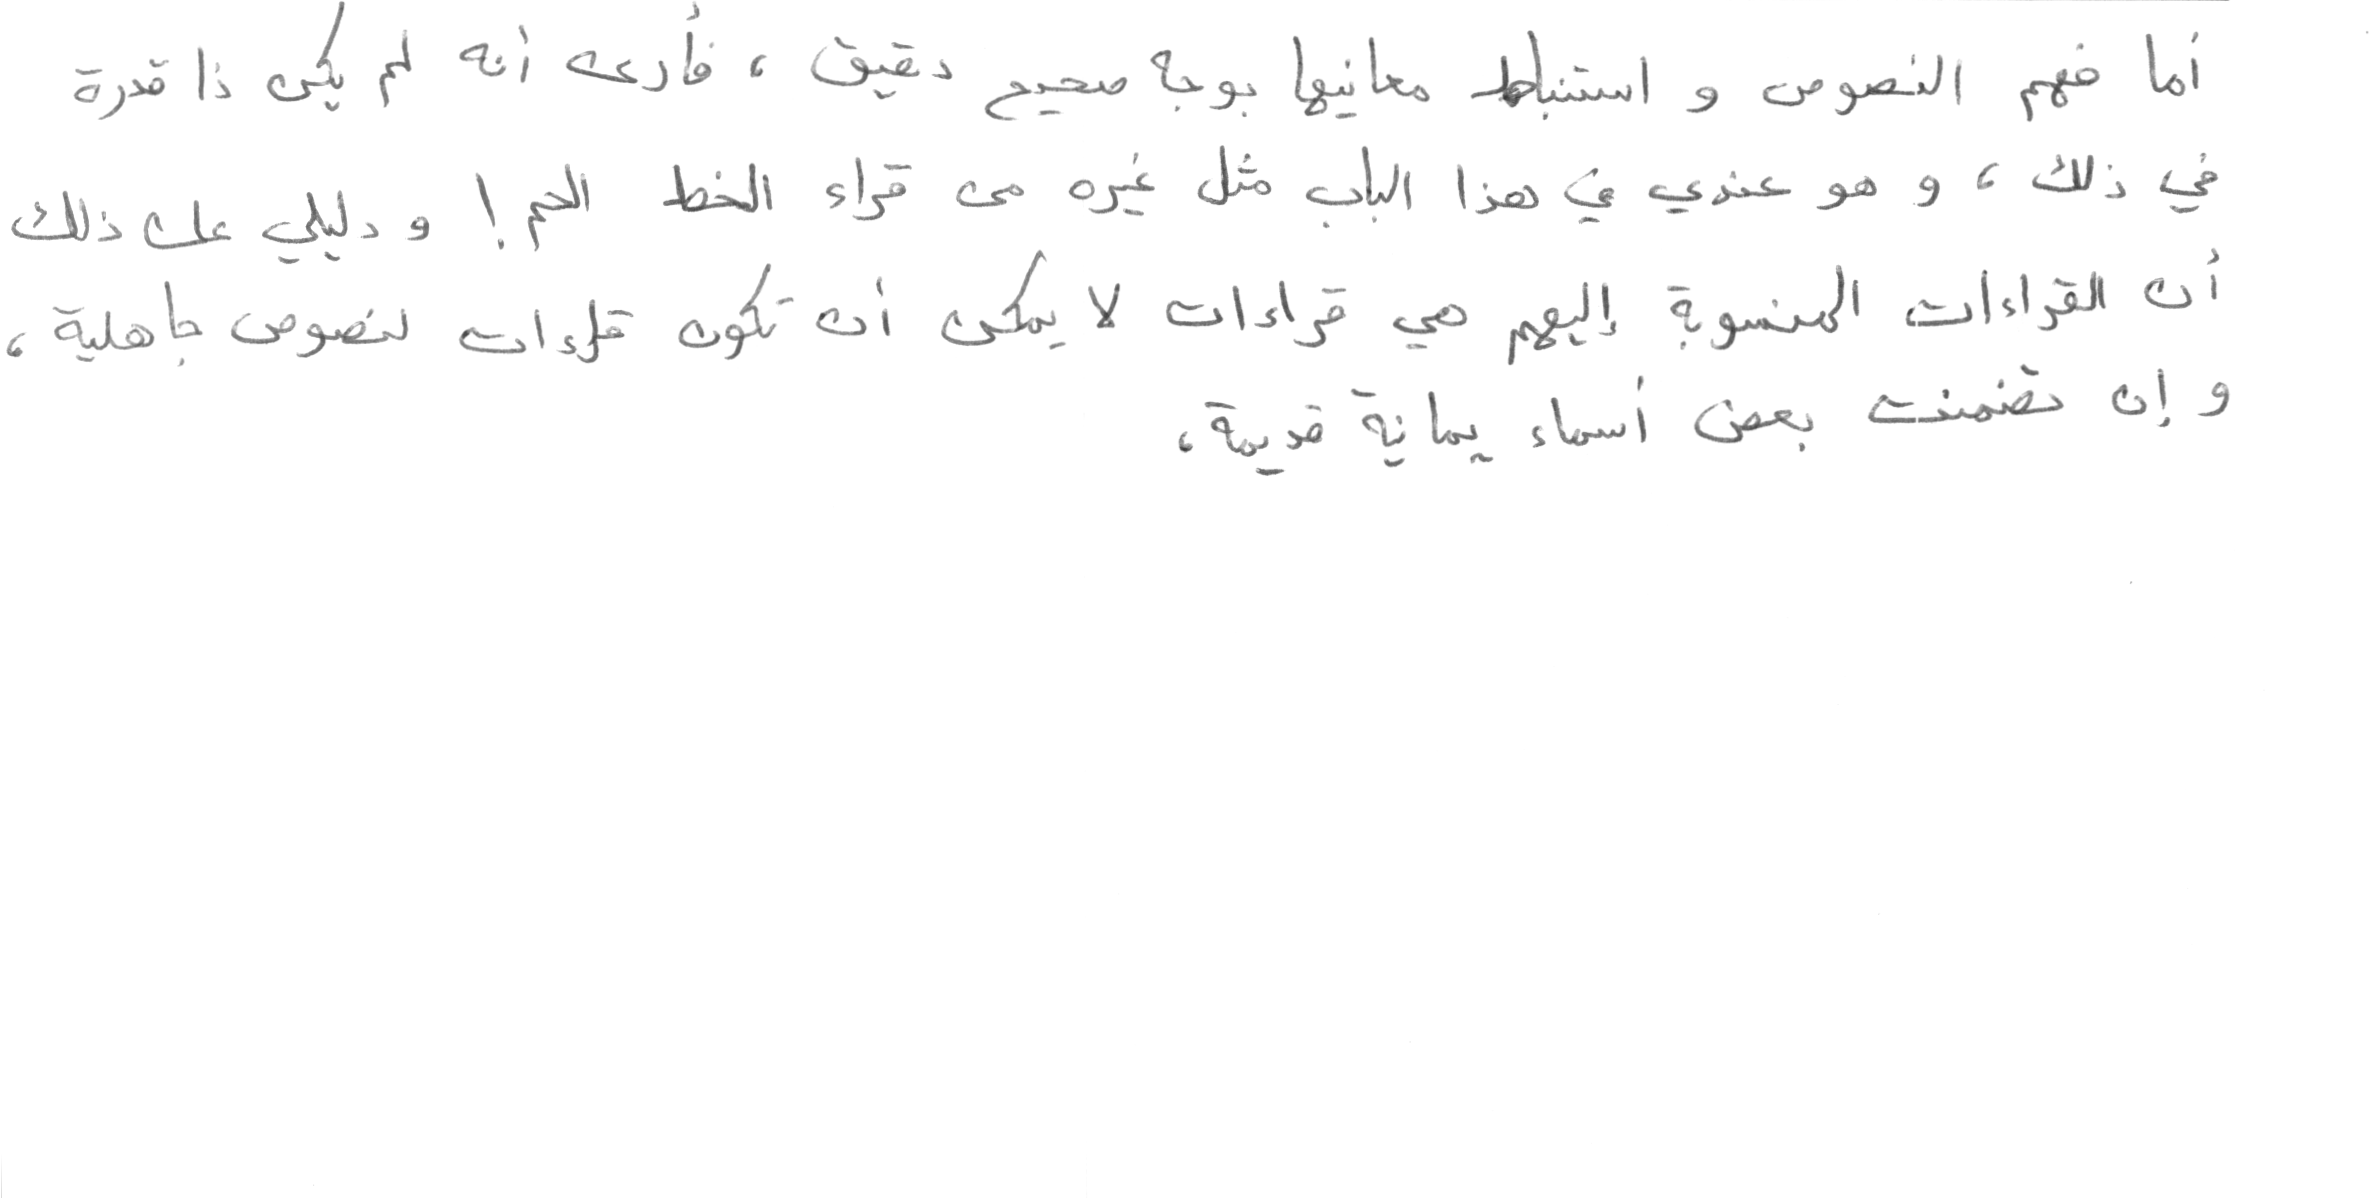 أما فهم النصوص و استنباط معانيها بوجه صحيح دقيق ، فأرى أنه لم يكن ذا قدرة
في ذلك ، و هو عندي في هذا الباب مثل غيره من قراء الخط ! و دليلي على ذلك
أن القراءات المنسوبة إليهم هي قراءات لا يمكن أن تكون قراءات لنصوص جاهلية ،
و إن تضمنت بعض أسماء يمانية قديمة ،